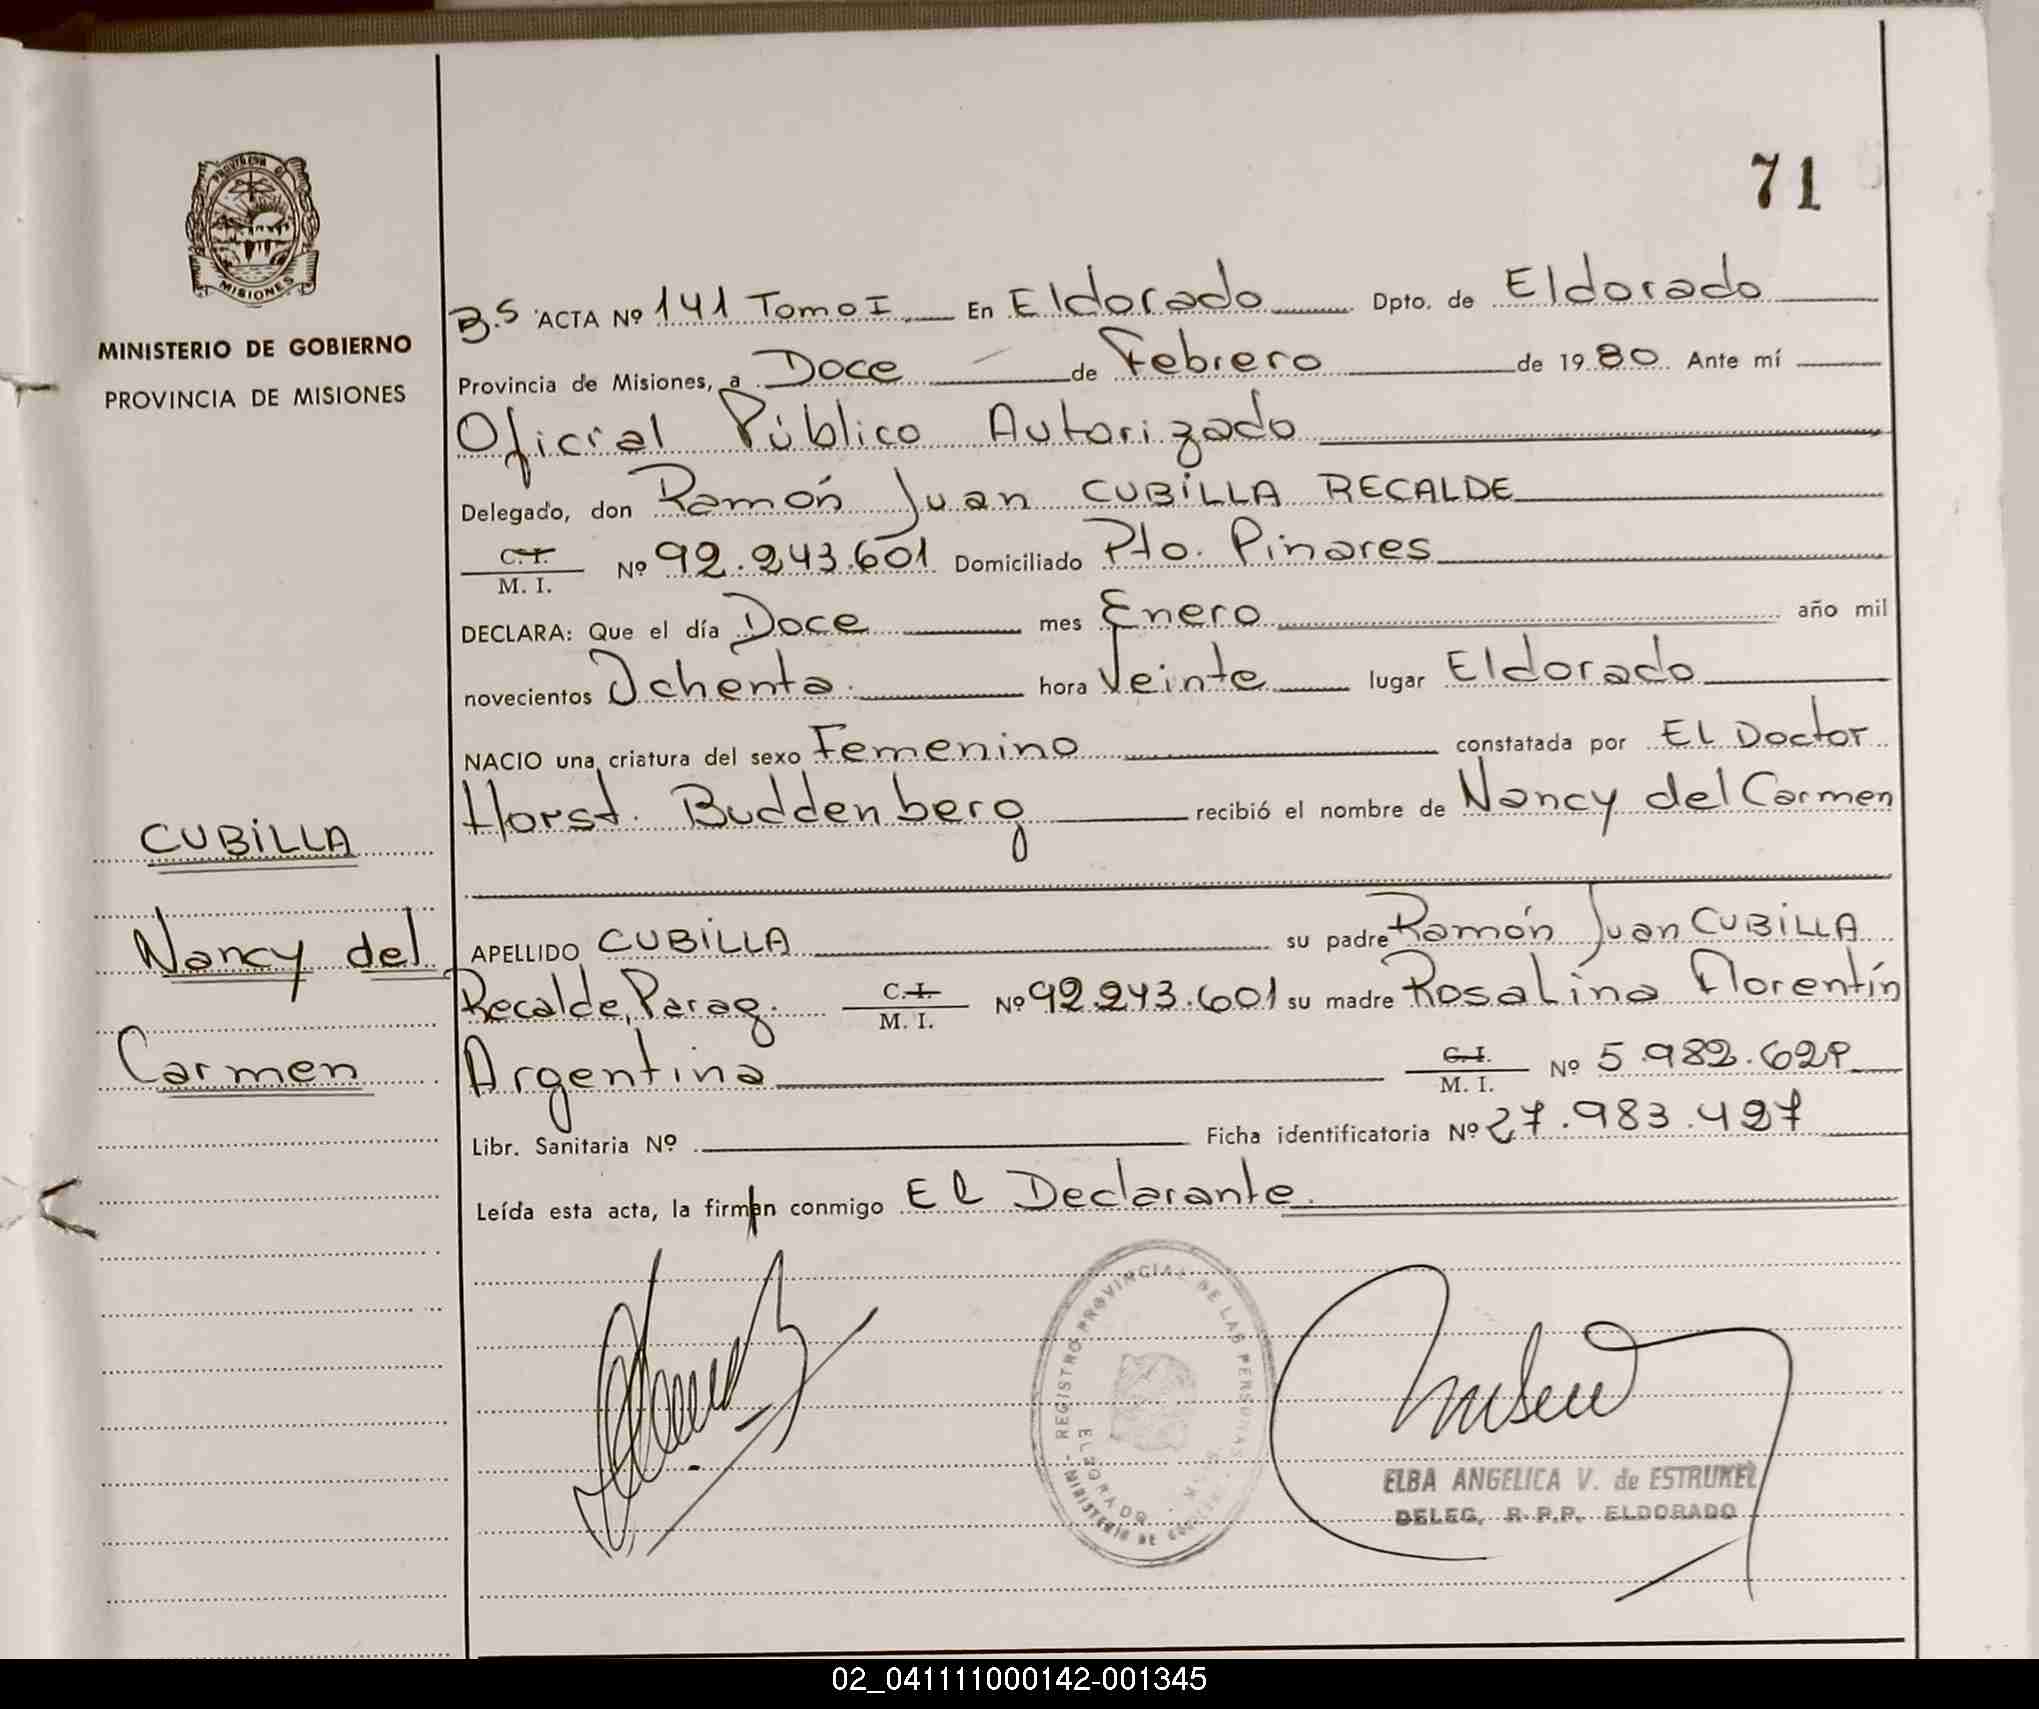 PROVINCIA D
MISIONES
MINISTERIO DE GOBIERNO
PROVINCIA DE MISIONES
CUBILLA
Nancy del
Carmen
71
B.S ACTA Nº 141 Tomo I En Eldorado Dpto. de Eldorado
Provincia de Misiones, a Doce de Febrero de 1980 Ante mí
Oficial Público Autorizado
Delegado, don Ramón Juan CUBILLA RECALDE
C.I. M. I. Nº 92.243.601 Domiciliado Pto. Pinares
DECLARA: Que el día Doce mes Enero año mil
novecientos Ochenta. hora Veinte lugar Eldorado
NACIO una criatura del sexo Femenino constatada por El Doctor
Horst. Buddenberg recibió el nombre de Nancy del Carmen
APELLIDO CUBILLA su padre Ramón Juan CUBILLA
Recalde, Parag. C.I. M. I. Nº 92.243.601 su madre Rosalina Florentín
Argentina C.I. M. I. Nº 5.982.629
Libr. Sanitaria Nº Ficha identificatoria Nº 27.983.427
Leída esta acta, la firman conmigo El Declarante.
REGISTRO PROVINCIAL DE LAS PERSONAS - MINISTERIO DE GOBIERNO
ELDORADO
ELBA ANGELICA V. de ESTRUKEL
DELEG. R.P.P. ELDORADO
02_041111000142-001345